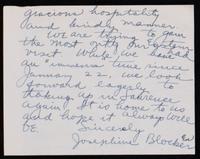 gracious hospitality
and kindly manner.
We are trying to gain
the most of our eastern
visit. While we have had
an "immense" time since
January 22, we look
forward eagerly to
taking up in Lawrence
again. It is home to us
and hope it always will
be.
Sincerely
Josephine Blocker